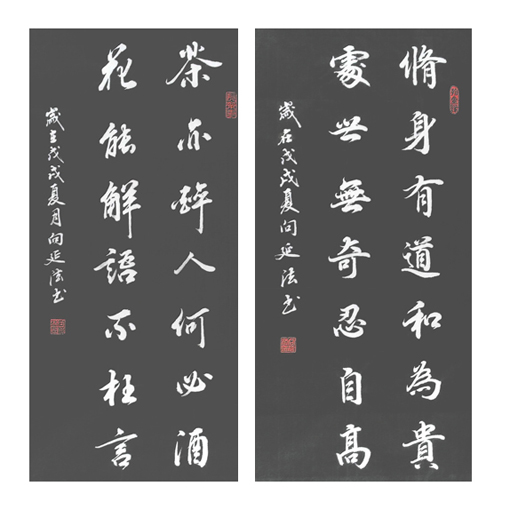 脩身有道和為貴
處世無奇忍自高
歲在戊戌夏向延法书
茶亦醉人何必酒
花能解語不枉言
歲在戊戌夏月向延法书